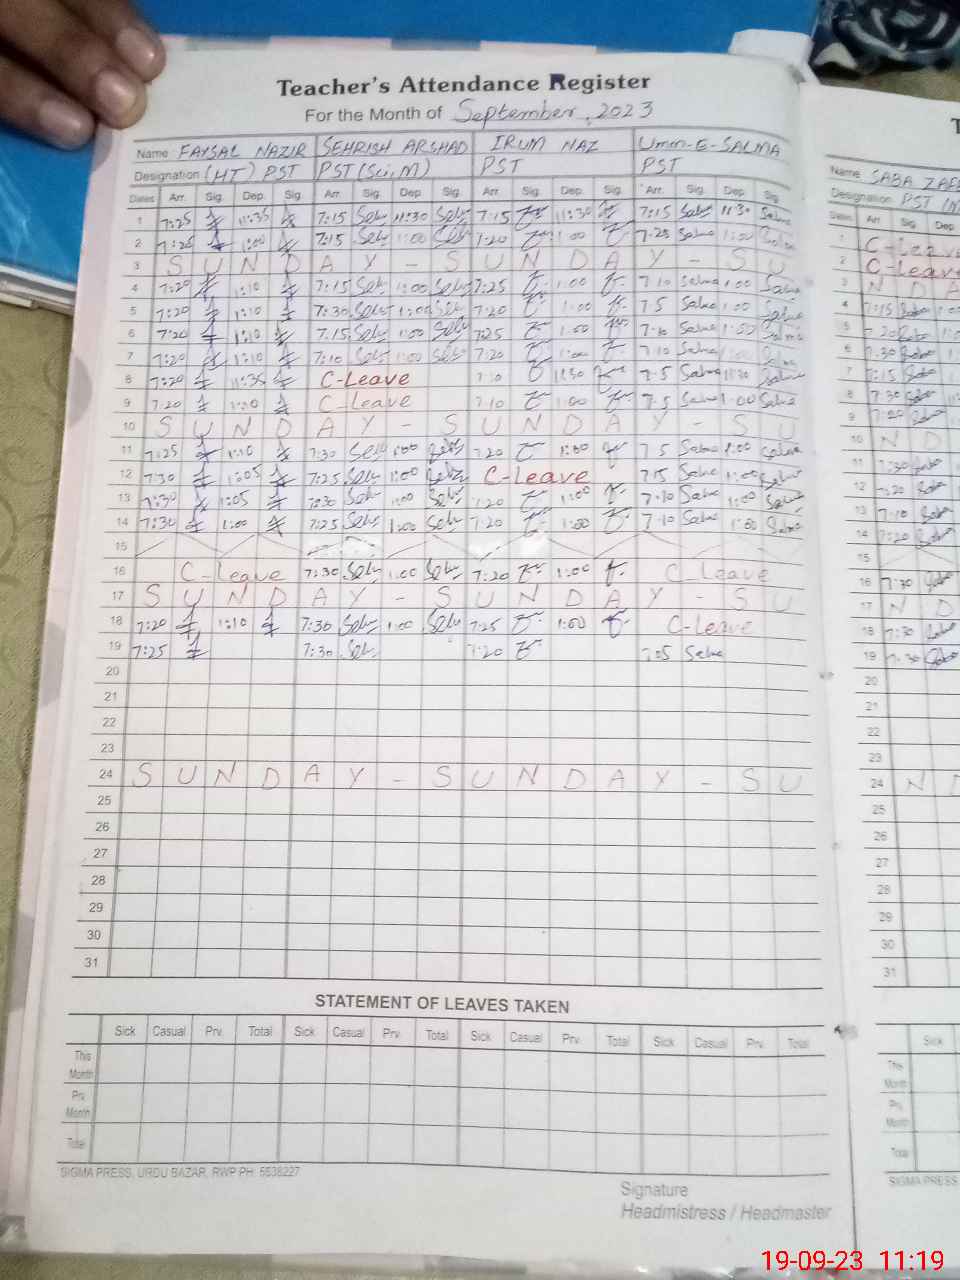 Teacher's Attendance Register
For the Month of September, 2023
Name FAYSAL NAZIR SEHRISH ARSHAD IRUM NAZ Umm-E-SALMA
Designation (HT) PST PST (Sci, M) PST PST
Dates Arr. Sig. Dep. Sig. Arr. Sig. Dep. Sig. Arr. Sig. Dep. Sig. Arr. Sig. Dep. Sig.
1 7:25 11:35 7:15 11:30 7:15 11:30 7:15 Salma 11:30 Salma
2 7:25 1:00 7:15 1:00 7:20 1:00 7:25 Salma 1:00 Salma
3 S U N D A Y - S U N D A Y - S U
4 7:20 1:10 7:15 1:00 7:25 1:00 7:10 Salma 1:00 Salma
5 7:20 1:10 7:30 1:00 7:20 1:00 7:5 Salma 1:00 Salma
6 7:20 1:10 7:15 1:00 7:25 1:00 7:10 Salma 1:00 Salma
7 7:20 1:10 7:10 1:00 7:20 1:00 7:10 Salma 1:00 Salma
8 7:20 11:35 C-Leave 7:10 11:30 7:5 Salma 11:30 Salma
9 7:20 1:10 C-Leave 7:10 1:00 7:5 Salma 1:00 Salma
10 S U N D A Y - S U N D A Y - S U
11 7:25 1:10 7:30 1:00 7:20 1:00 7:5 Salma 1:00 Salma
12 7:30 1:05 7:25 1:00 C-Leave 7:15 Salma 1:00 Salma
13 7:30 1:05 7:30 1:00 7:20 1:00 7:10 Salma 1:00 Salma
14 7:30 1:00 7:25 1:00 7:20 1:00 7:10 Salma 1:00 Salma
15
16 C-Leave 7:30 1:00 7:20 1:00 C-Leave
17 S U N D A Y - S U N D A Y - S U
18 7:20 1:10 7:30 1:00 7:25 1:00 C-Leave
19 7:25 7:30 7:20 7:05 Salma
20
21
22
23
24 S U N D A Y - S U N D A Y - S U
25
26
27
28
29
30
31
STATEMENT OF LEAVES TAKEN
Sick Casual Prv. Total Sick Casual Prv. Total Sick Casual Prv. Total Sick Casual Prv. Total
This
Month
Prv.
Month
Total
SIGMA PRESS, URDU BAZAR, RWP PH: 5538227
Signature
Headmistress / Headmaster
T
Name
SABA
Designation PST
Dates Arr. Sig. Dep
1 C-Leave
2 C-Leave
3 N D A
4 7:15
5 7:20
6 7:30
7 7:15
8 7:30
9 7:20
10 N D
11 7:30
12 7:20
13 7:10
14 7:20
15
16 7:30
17 N D
18 7:30
19 7:30
20
21
22
23
24 N D
25
26
27
28
29
30
31
Sick
This
Month
Prv.
Month
Total
SIGMA PRESS
19-09-23 11:19